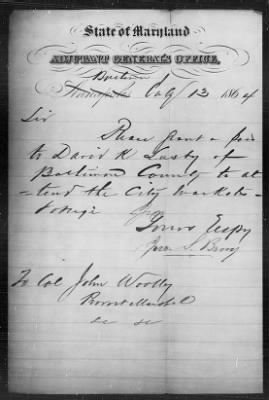 State of Maryland
ADJUTANT GENERAL'S OFFICE,
Baltimore
Annapolis Aug 13 1864
Sir
Please grant a pass
to David K Lusby of
Baltimore County to at
=tend the City Markets
Yours Respy
To Col John Woolly
Provost Marshal
&c &c